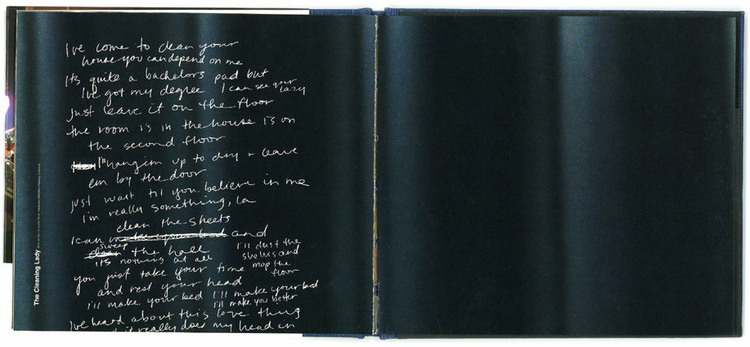 I've come to clean your
house you can depend on me
Its quite a bachelors pad but
I've got my degree I can see your lazy
Just leave it on the floor
the room is in the house is on
the second floor
I'm hang em up to dry + leave
em by the door
just wait til you believe in me
I'm really something, la
clean the sheets
I can make your bed and
sweep the hall
its nothing at all
I'll dust the
shelves and
mop the
floor
you just take your time
and rest your head
i'll make your bed I'll make your bed
i'll make you better
I've heard about this love thing
it really does my head in
The Cleaning Lady